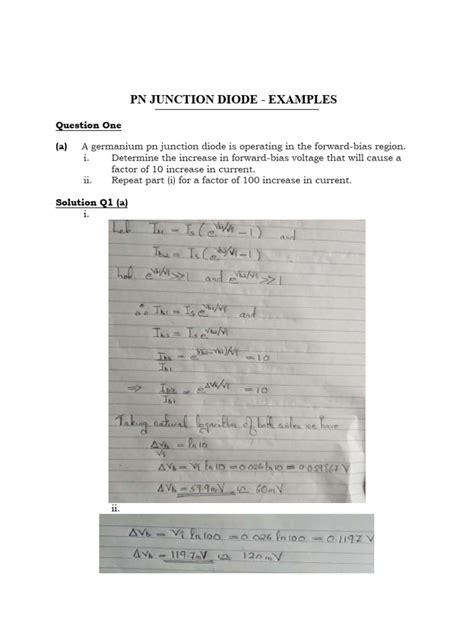 PN JUNCTION DIODE - EXAMPLES
Question One
(a) A germanium pn junction diode is operating in the forward-bias region.
i. Determine the increase in forward-bias voltage that will cause a
factor of 10 increase in current.
ii. Repeat part (i) for a factor of 100 increase in current.
Solution Q1 (a)
i.
Let I_b1 = I_s(e^(V_b1/V_j) - 1) and
I_b2 = I_s(e^(V_b2/V_j) - 1)
Let e^(V_b1/V_j) >> 1 and e^(V_b2/V_j) >> 1
∴ I_b1 = I_s e^(V_b1/V_j) and
I_b2 = I_s e^(V_b2/V_j)
I_b2/I_b1 = e^((V_b2-V_b1)/V_j) = 10
⇒ I_b2/I_b1 = e^(ΔV_b/V_j) = 10
Taking natural logarithm of both sides we have
ΔV_b/V_j = ln 10
ΔV_b = V_j ln 10 = 0.026 ln 10 = 0.059867 V
ΔV_b = 59.9mV ≈ 60mV
ii.
ΔV_b = V_j ln 100 = 0.026 ln 100 = 0.1197 V
ΔV_b = 119.7mV ≈ 120mV